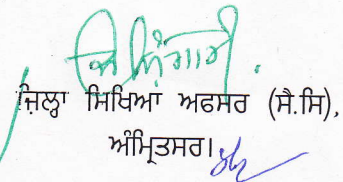 ਜ਼ਿਲ੍ਹਾ ਸਿਖਿਆਂ ਅਫਸਰ (ਸੈ.ਸਿ),
ਅੰਮ੍ਰਿਤਸਰ।